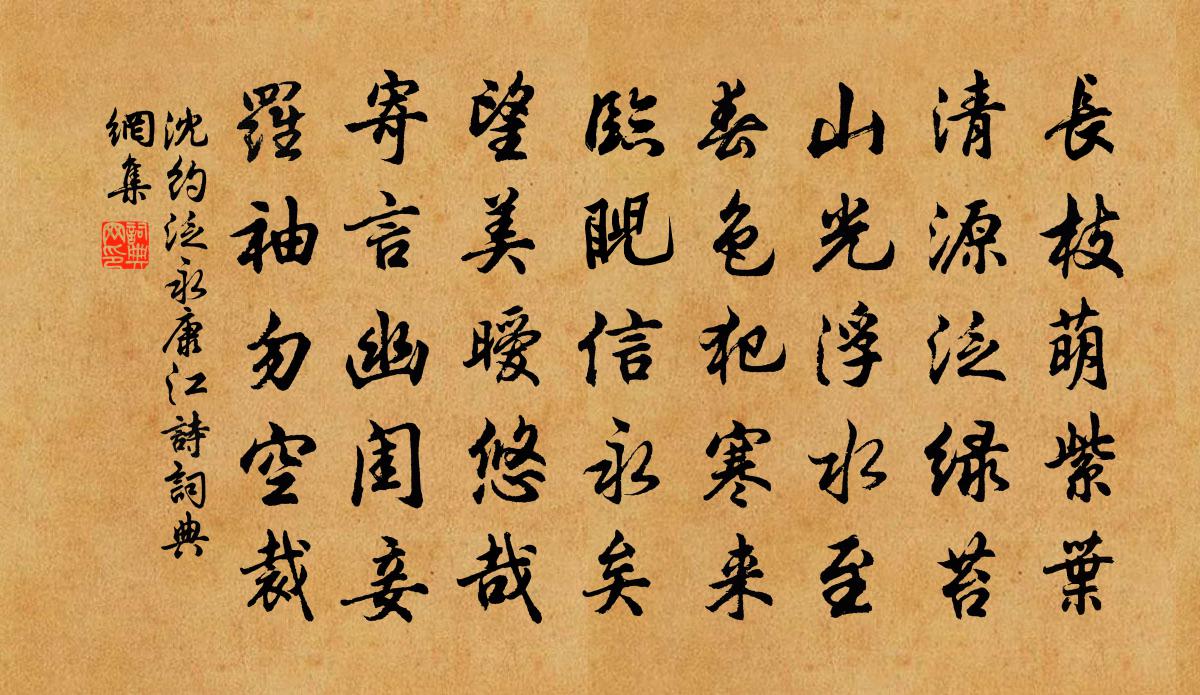 長枝萌紫葉
清源泛緑苔
山光浮水至
春色犯寒来
臨睍信永矣
望美曖悠哉
寄言幽閨妾
羅袖勿空裁
沈約泛永康江詩詞典
網集
詞典
网印